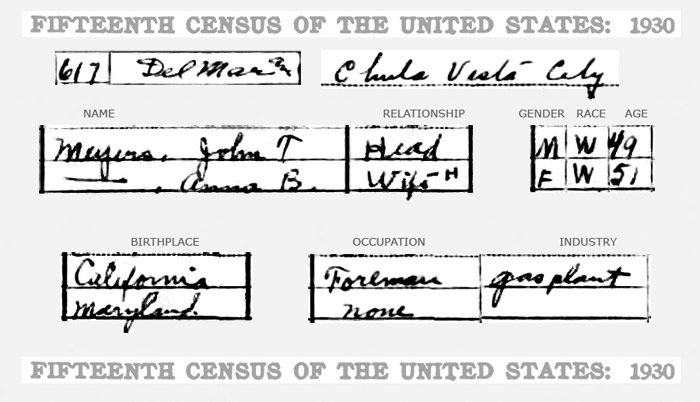 FIFTEENTH CENSUS OF THE UNITED STATES: 1930
617 Del Mar Chula Vista City
NAME RELATIONSHIP GENDER RACE AGE
Meyers, John T Head M W 49
—, Anna B. Wife H F W 51
BIRTHPLACE OCCUPATION INDUSTRY
California Foreman gas plant
Maryland none
FIFTEENTH CENSUS OF THE UNITED STATES: 1930